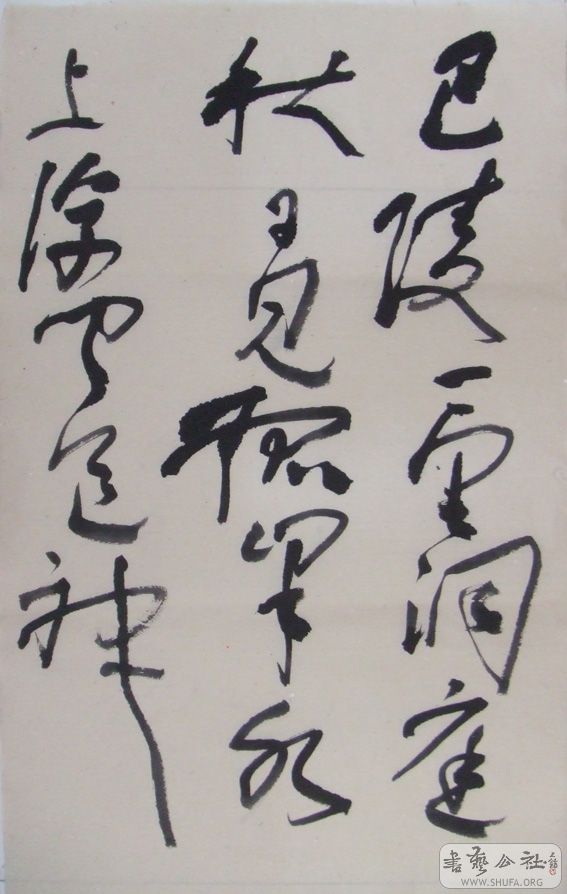 巴陵一望洞庭
秋日見孤峯水
上浮聞道神
書藝公社
WWW.SHUFA.ORG